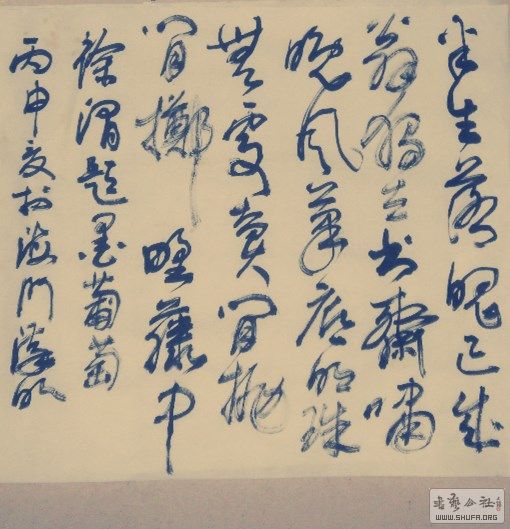 半生落魄已成
翁獨立書齋嘯
晚風筆底明珠
無處賣閒拋
閒擲野藤中
徐渭題墨葡萄
丙申夏於海門
書藝公社
WWW.SHUFA.ORG